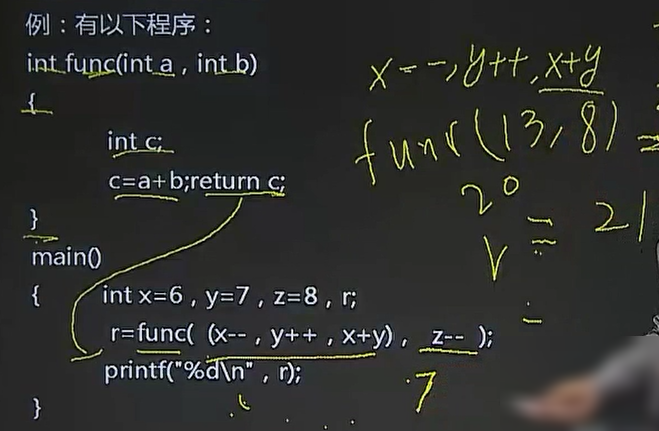 例：有以下程序：
int func(int a , int b)
{
int c;
c=a+b;return c;
}
main()
{ int x=6 , y=7 , z=8 , r;
r=func( (x-- , y++ , x+y) , z-- );
printf("%d\n" , r);
}
x--, y++, x+y
func(13,8)
20
= 21
7